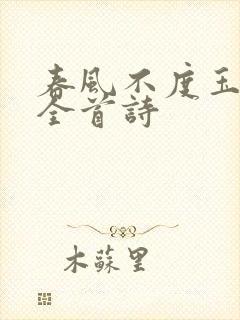 春風不度玉
全首詩
木蘇里